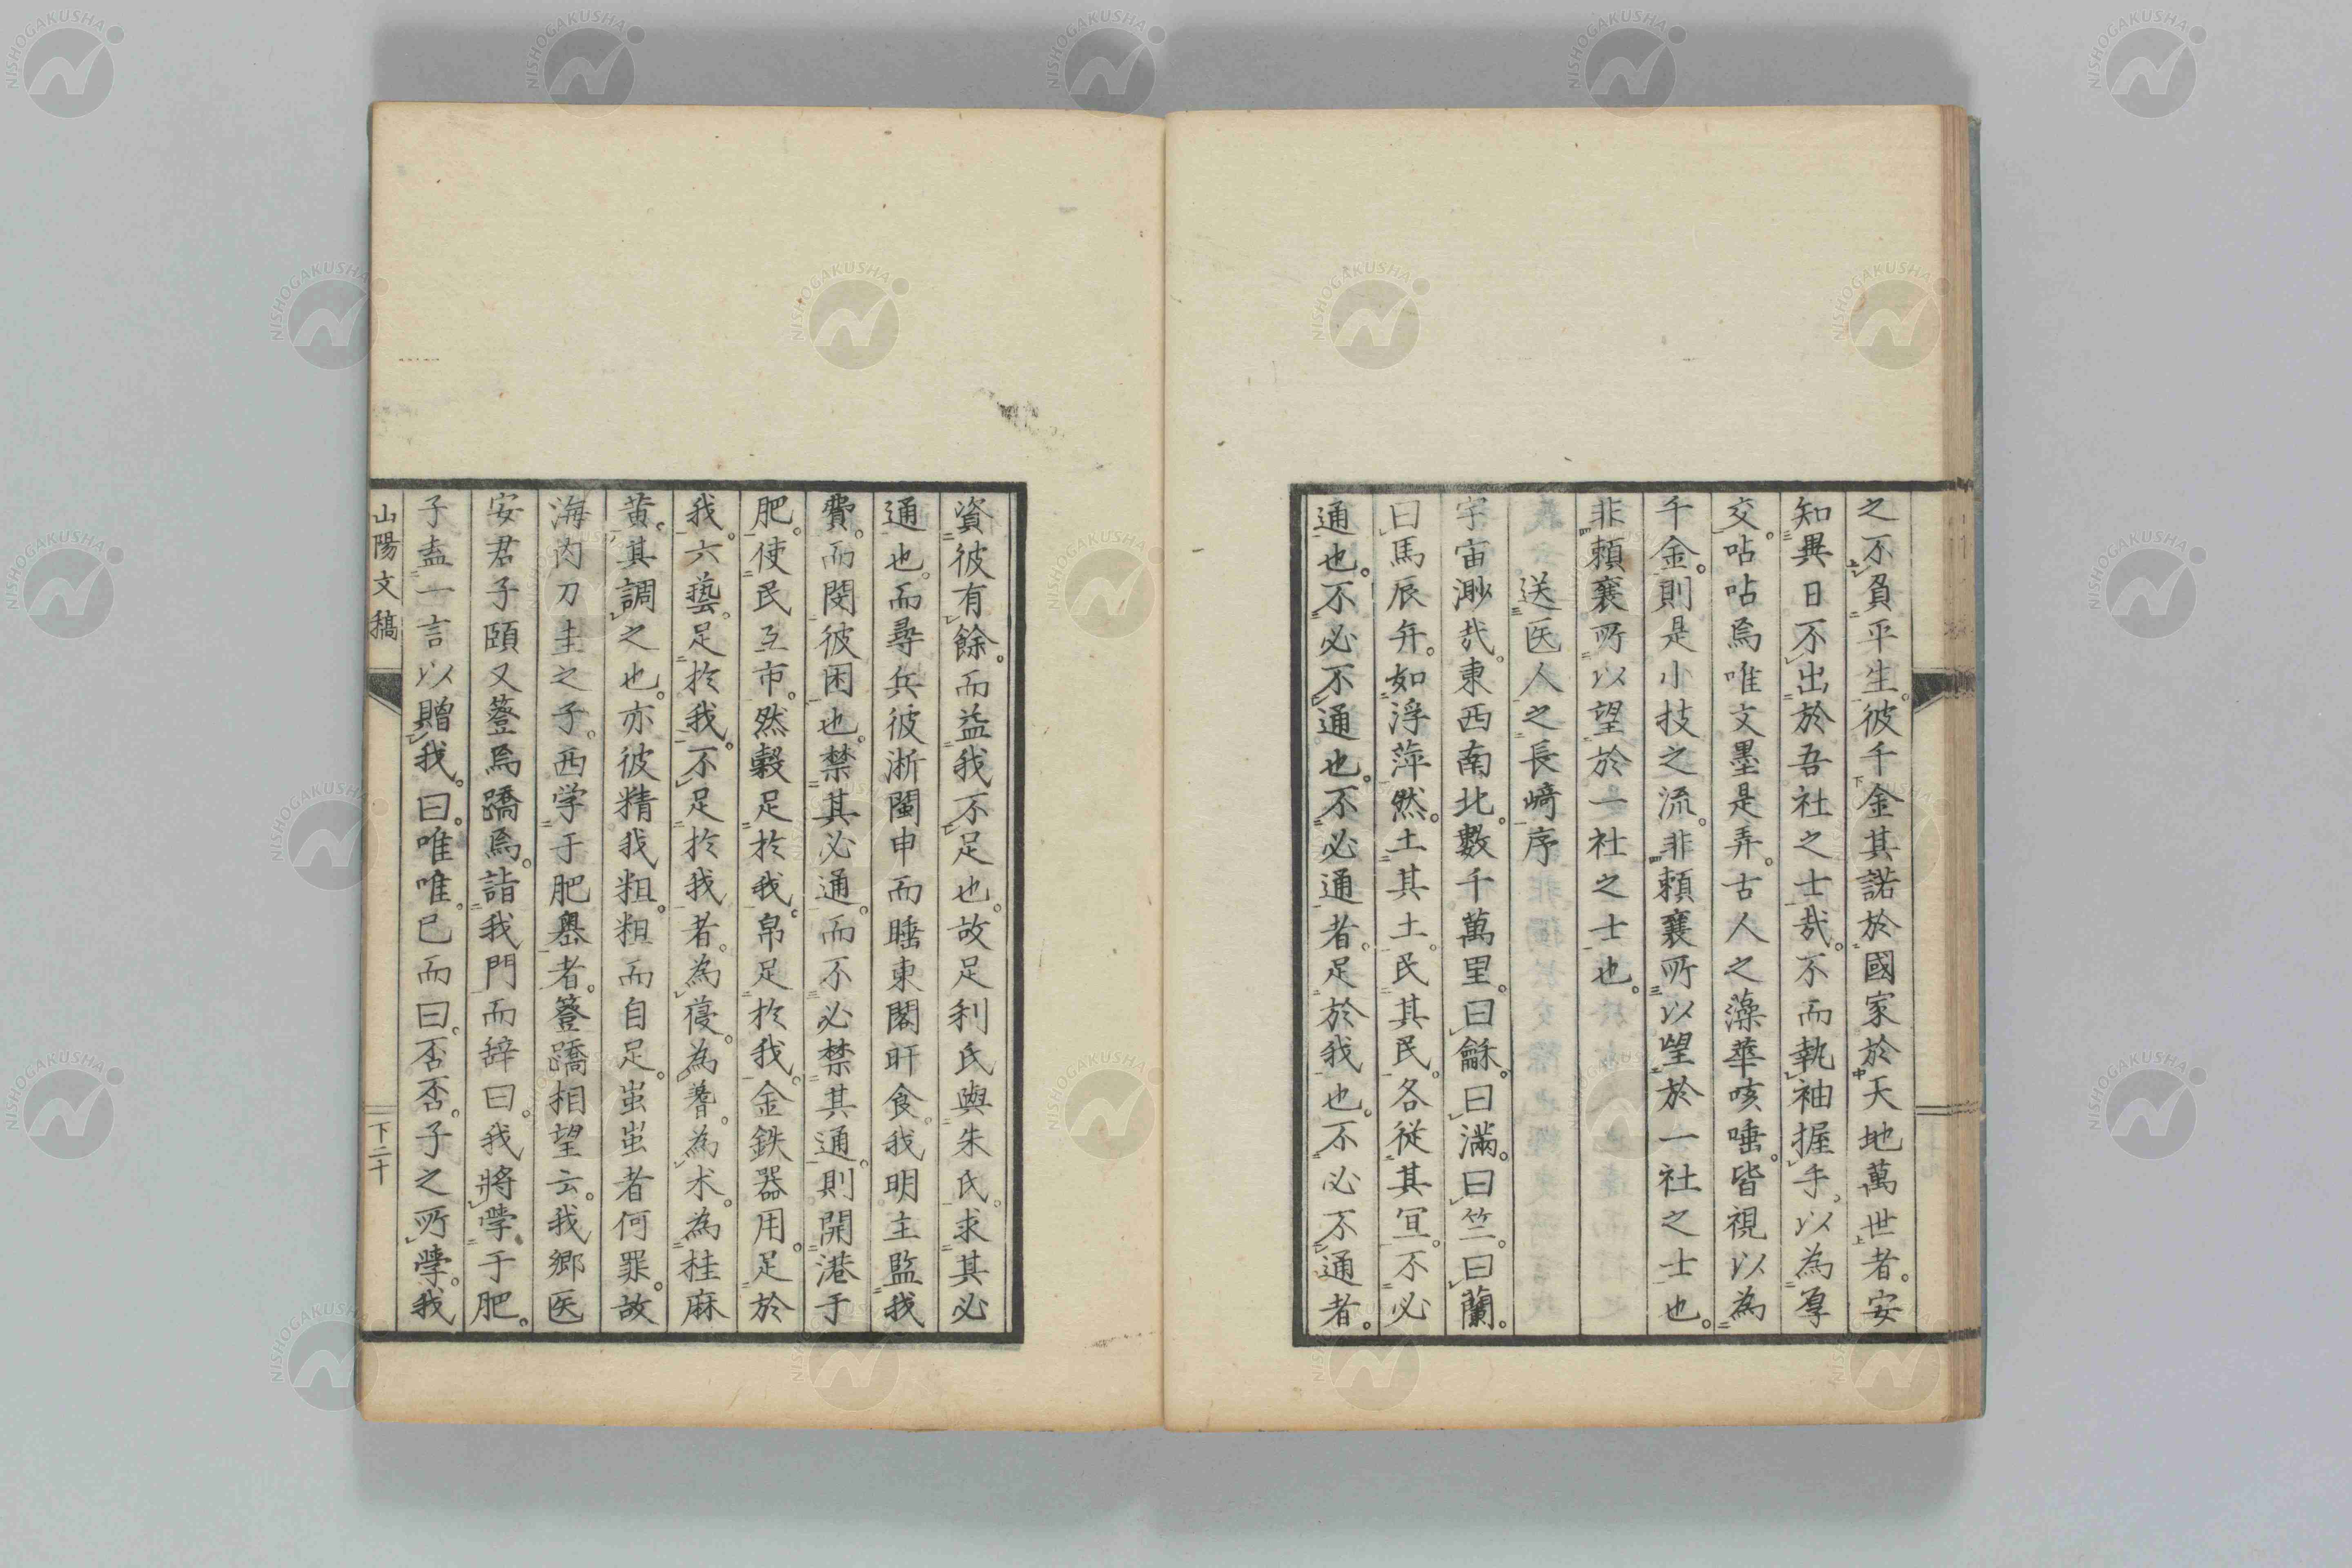 之不負平生。彼千金其諾於國家於天地萬世者。安
知異日不出於吾社之士哉。不而執袖握手。以為厚
交。呫呫焉唯文墨是弄。古人之藻華咳唾。皆視以為
千金。則是小技之流。非頼襄所以望於一社之士也。
非頼襄所以望於一社之士也。
送医人之長﨑序
宇宙渺哉。東西南北。數千萬里。曰龢。曰滿。曰竺。曰蘭。
曰馬辰弁。如浮萍然。土其土。民其民。各從其冝。不必
通也。不必不通也。不必通者。足於我也。不必不通者。
資彼有餘。而益我不足也。故足利氏與朱氏。求其必
通也。而尋兵彼浙閩申而睡東閣旰食。我明主監我
費。而閔彼困也。禁其必通。而不必禁其通。則開港于
肥。使民互市。然穀足於我。帛足於我。金鉄器用。足於
我。六藝。足於我。不足於我者。為為為朮。為桂麻
黄。其調之也。亦彼精我粗。粗而自足。蚩蚩者何罪。故
海内刀圭之子。西学于肥嶴者。簦蹻相望云。我郷医
安君子頤又簦焉蹻焉。詣我門而辞曰。我將學于肥。
子盍一言以贈我。曰。唯唯。已而曰。否否。子之所學。我
山陽文稿
下二十
NISHOGAKUSHA